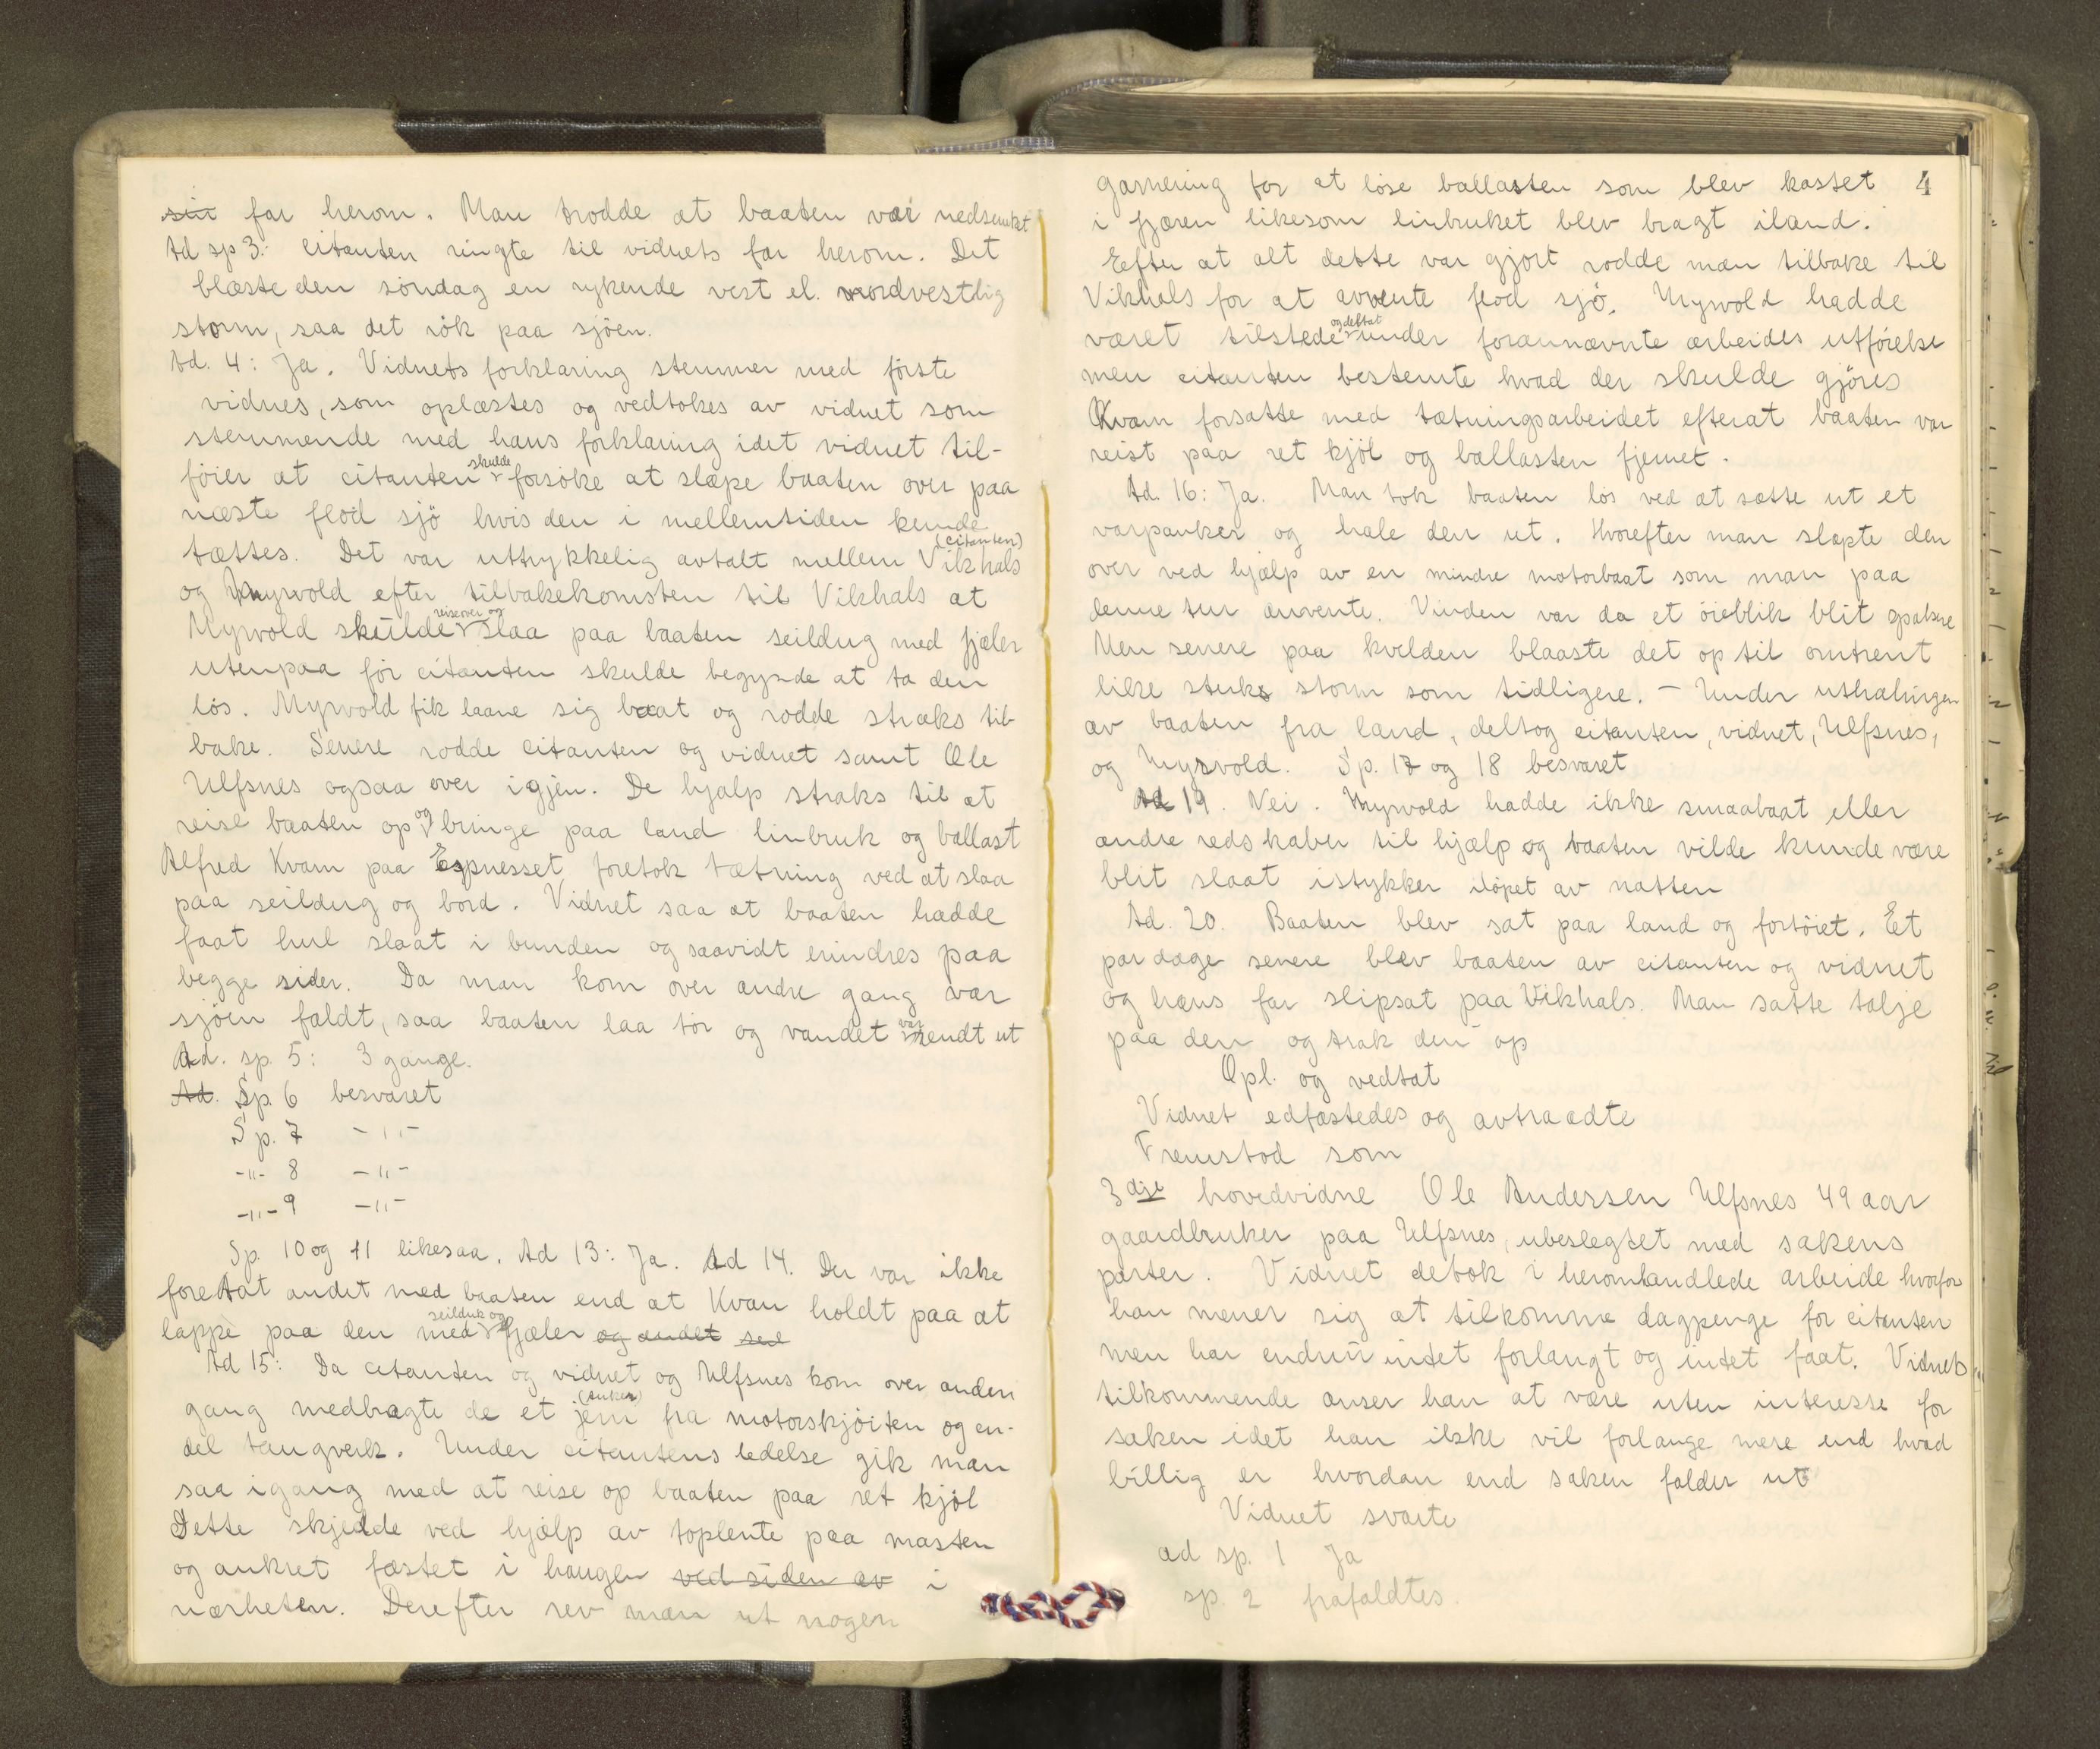 sin far herom. Man trodde at baaten var nedsunket
Ad sp 3: Citanten ringte til vidnets far herom. Det
blæste den söndag en rykende vest el. nordvestlig
storm, saa det rök paa sjöen.
Ad. 4: Ja. Vidnets forklaring stemmer med förste
vidnes, som oplæstes og vedtokes av vidnet som
stemmende med hans forklaring idet vidnet til-
föier at citanten skulde forsöke at slæpe baaten over paa
næste flod sjö hvis den i mellemtiden kunde
tættes. Det var uttrykkelig avtalt mellem Vikhals (citanten)
og Myrvold efter tilbakekomsten til Vikhals at
Myrvold skulde reise over og slaa paa baaten seildug med fjæler
utenpaa för citanten skulde begynde at ta den
lös. Myrvold fik laane sig baat og rodde straks til-
bake. Senere rodde citanten og vidnet samt Ole
Ulfsnes ogsaa over igjen. De hjalp straks til at
reise baaten op og bringe paa land linbruk og ballast
Alfred Kvam paa Espnesset foretok tætning ved at slaa
paa seildug og bord. Vidnet saa at baaten hadde
faat hul slaat i bunden og saavidt erindres paa
begge sider. Da man kom over andre gang var
sjöen faldt, saa baaten laa tör og vandet var rendt ut
Ad. sp. 5: 3 gange.
Ad. Sp. 6 besvaret
Sp. 7 -"-
-"- 8 -"-
-"- 9 -"-
Sp. 10 og 11 likesaa. Ad 13: Ja. Ad 14. Der var ikke
foretat andet med baaten end at Kvam holdt paa at
lappe paa den med seilduk og fjæler og andet sed
Ad 15: Da citanten og vidnet og Ulfsnes kom over anden
gang medbragte de et jern (anker) fra motorskjöiten og en-
del taugverk. Under citantens ledelse gik man
saa igang med at reise op baaten paa ret kjöl
Dette skjedde ved hjælp av toplente paa masten
og ankret fæstet i haugen ved siden av i
nærheten. Derefter rev man ut nogen
4
garnering for at löse ballasten som blev kastet
i fjæren likesom linbruket blev bragt iland.
Efter at alt dette var gjort rodde man tilbake til
Vikhals for at avvente flod sjö. Myrvold hadde
været tilstede og deltat under forannævnte arbeides utförelse
men citanten bestemte hvad der skulde gjöres
Kvam forsatte med tætningsarbeidet efterat baaten var
reist paa ret kjöl og ballasten fjernet.
Ad. 16: Ja. Man tok baaten lös ved at sætte ut et
varpanker og hale den ut. Hvorefter man slæpte den
over ved hjælp av en mindre motorbaat som man paa
denne tur anvente. Vinden var da et öieblik blit spakere
Men senere paa kvelden blaaste det op til omtrent
like sterk storm som tidligere. - Under uthalingen
av baaten fra land, deltog citanten, vidnet, Ulfsnes,
og Myrvold. Sp. 17 og 18 besvaret
Ad 19. Nei. Myrvold hadde ikke smaabaat eller
andre redskaber til hjælp og baaten vilde kunde være
blit slaat istykker iløpet av natten
Ad. 20. Baaten blev sat paa land og fortöiet. Et
par dage senere blev baaten av citanten og vidnet
og hans far slipsat paa Vikhals. Man satte talje
paa den og trak den op
Opl. og vedtat
Vidnet edfæstedes og avtraadte
Fremstod som
3dje hovedvidne Ole Andersen Ulfsnes 49 aar
gaardbruker paa Ulfsnes, ubeslegtet med sakens
parter. Vidnet detok i heromhandlede arbeide hvorfor
han mener sig at tilkomme dagpenge for citanten
men har endnu intet forlangt og intet faat. Vidnets
tilkommende anser han at være uten interesse for
saken idet han ikke vil forlange mere end hvad
billig er hvordan end saken falder ut
Vidnet svarte
ad sp. 1 Ja
sp. 2 frafaldtes.